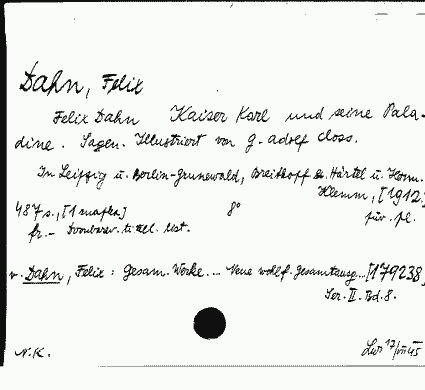 Dahn, Felix
Felix Dahn Kaiser Karl und seine Pala-
dine. Sagen. Illustriert von G. Adolf Closs.
In Leipzig u. Berlin-Grunewald, Breitkopf & Härtel u. Herm.
Klemm, [1912.]
487 s., [1 mapka] 8°
fr.- tytul.
v. Dahn, Felix: Gesam. Werke... Neue wohlf. Gesamtausg... [179238]
Ser. II. Bd. 8.
N.K. 17/VII 45